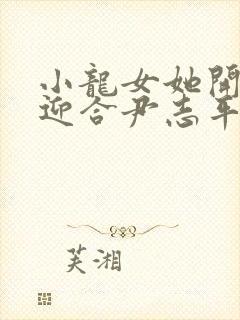 小龍女她開
迎合尹志平
芙湘